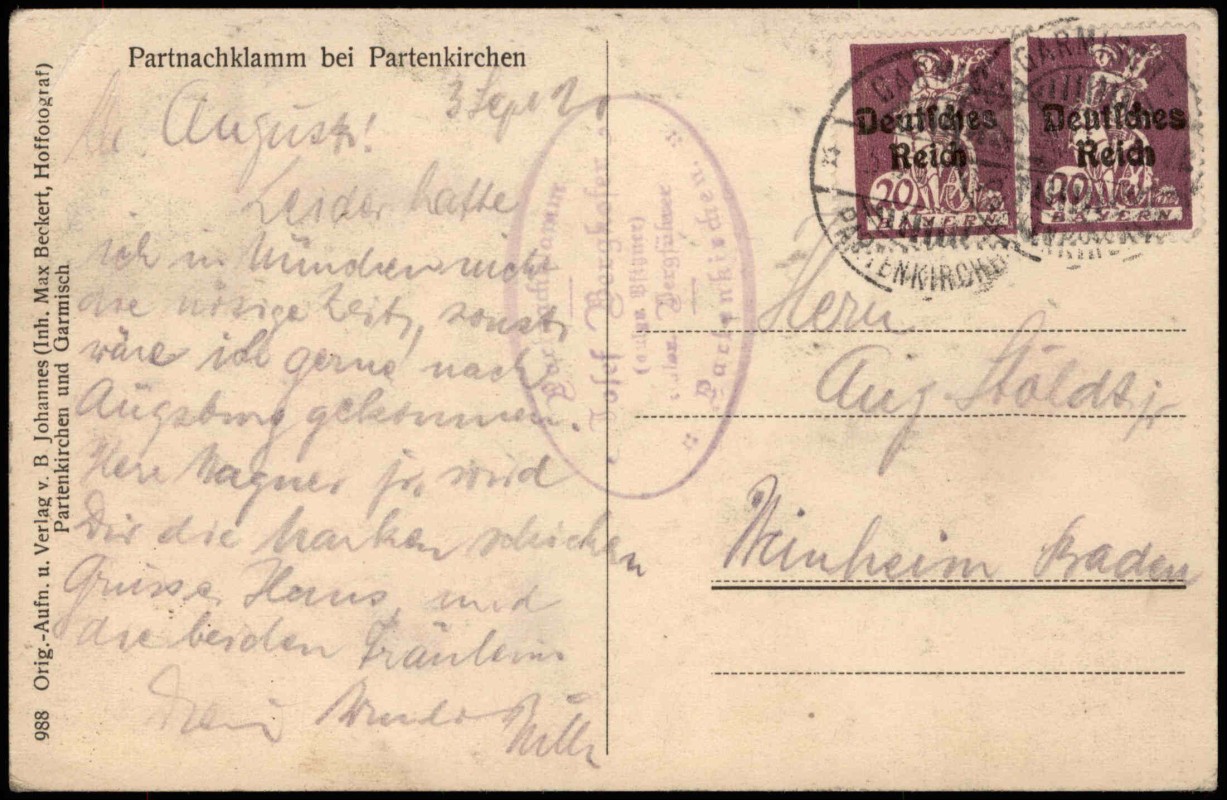 Partnachklamm bei Partenkirchen
3 Sept 20
August!
Leider hatte
ich in München nicht
die nötige Zeit, sonst
wäre ich gerne nach
Augsburg gekommen.
Herr Wagner jr. wird
Dir die Marken schicken
Grüsse Hans und
die beiden Fräuleins
Dein
Willi
988 Orig.-Aufn. u. Verlag v. B Johannes (Inh. Max Beckert, Hoffotograf)
Partenkirchen und Garmisch
Partnachklamm
Josef Berghofer
Bergführer
Partenkirchen.
Deutsches
Reich
20
BAYERN
Deutsches
Reich
20
BAYERN
GARMISCH
PARTENKIRCHEN
Herrn
Aug. Stöldt jr
Weinheim Baden